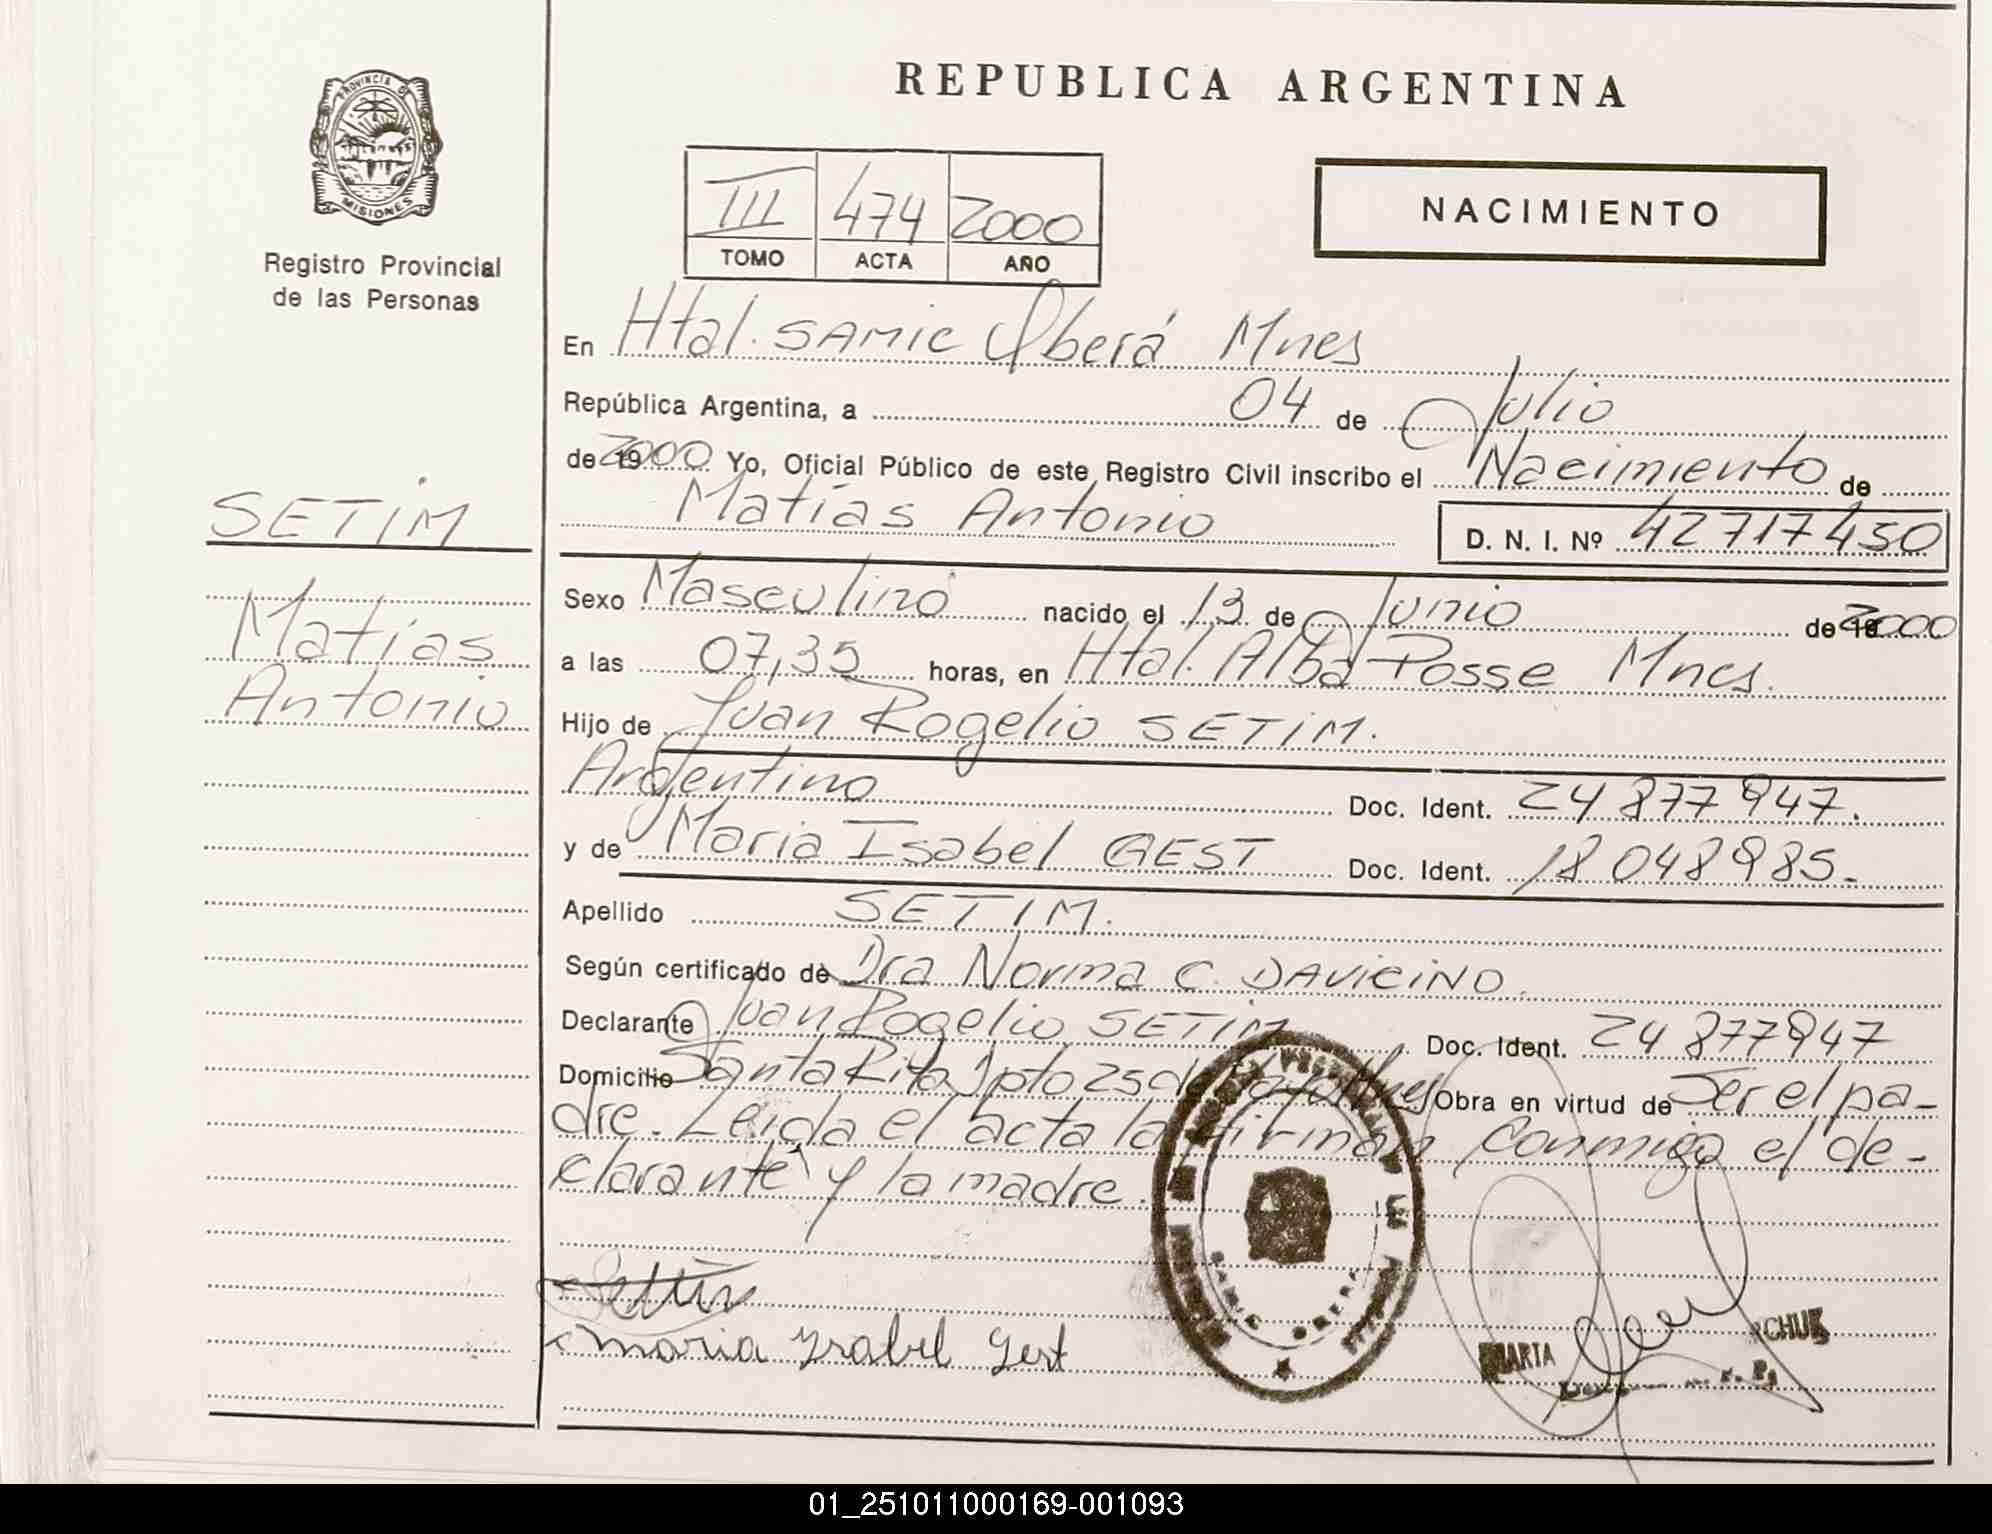 PROVINCIA DE
MISIONES
Registro Provincial
de las Personas
SETIM
Matías
Antonio
REPUBLICA ARGENTINA
III 474 2000
TOMO ACTA AÑO
NACIMIENTO
En Htal. SAMIC Oberá Mnes
República Argentina, a 04 de Julio
de 2000 Yo, Oficial Público de este Registro Civil inscribo el Nacimiento de
Matías Antonio D. N. I. Nº 42717450
Sexo Masculino nacido el 13 de Junio de 2000
a las 07,35 horas, en Htal. Alba Posse Mnes.
Hijo de Juan Rogelio SETIM.
Argentino Doc. Ident. 24877947.
y de Maria Isabel GEST Doc. Ident. 18048985.
Apellido SETIM.
Según certificado de Dra Norma C. DAVICINO.
Declarante Juan Rogelio SETIM Doc. Ident. 24877947
Domicilio Santa Rita Dpto 25 de Mayo Mnes Obra en virtud de Ser el pa-
dre. Leida el acta la firman conmigo el de-
clarante y la madre.
maria ysabel Gest
MARTA
OBERA
01_251011000169-001093